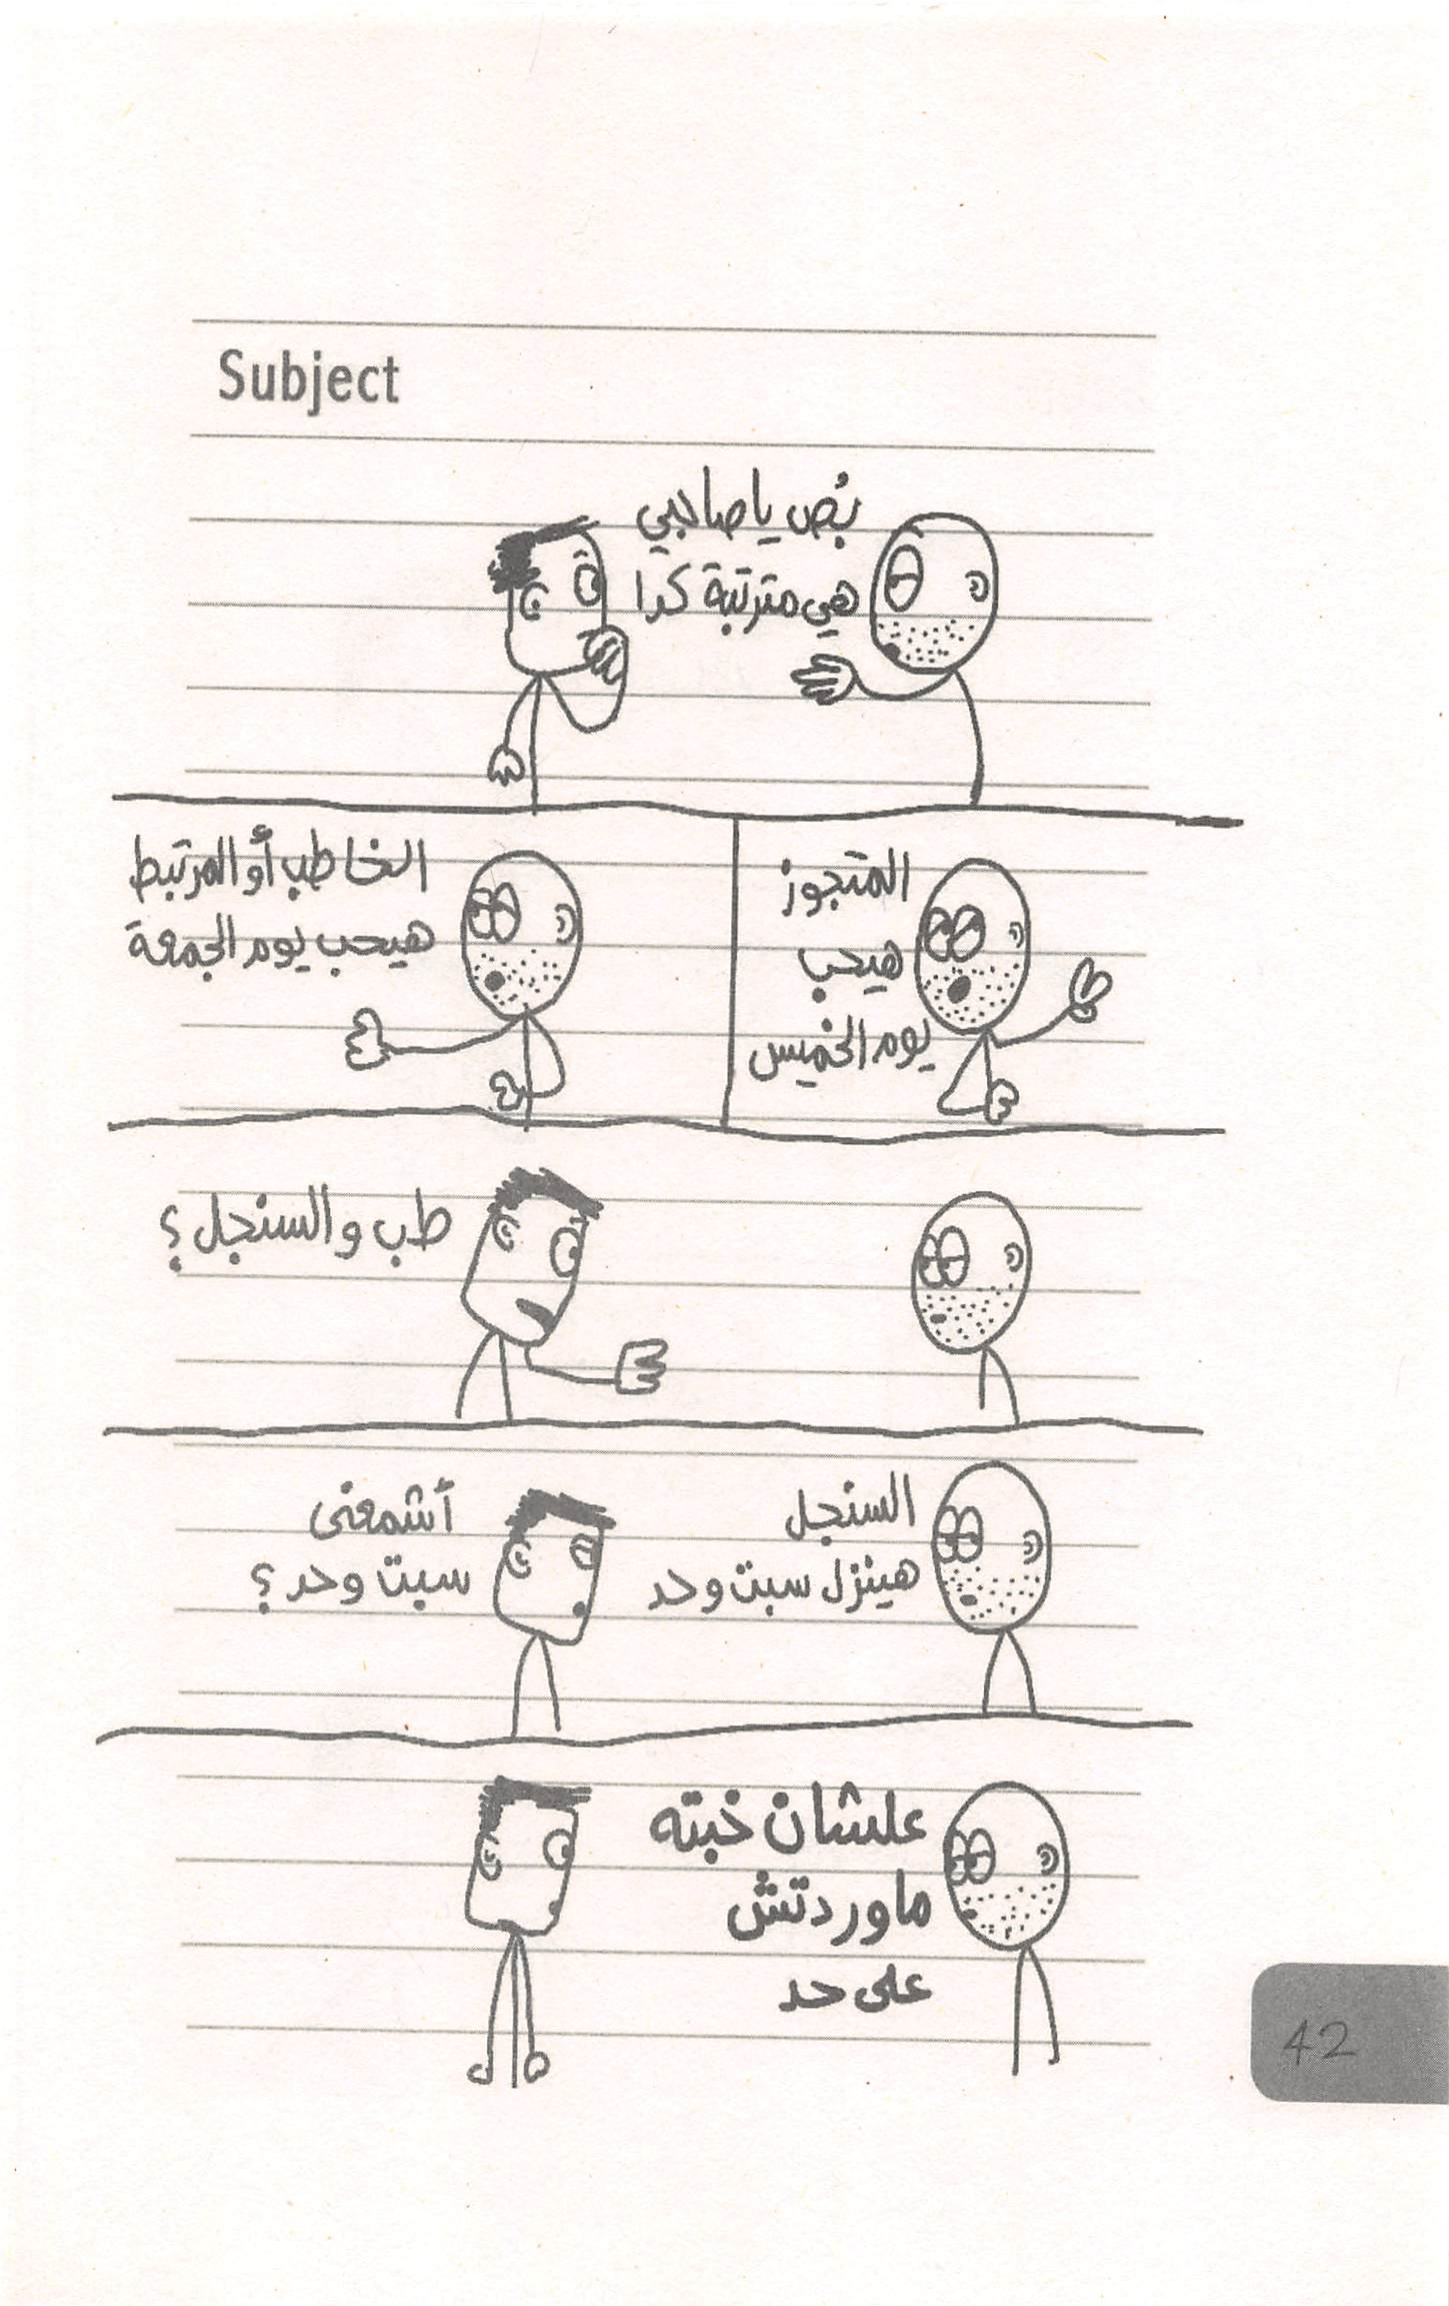 Subject
بُص يا صاحبي
هي مترتبة كدا
المتجوز
هيحب
يوم الخميس
الخاطب أو المرتبط
هيحب يوم الجمعة
طب والسنجل؟
السنجل
هينزل سبت وحد
أشمعنى
سبت وحد؟
علشان خبته
ماوردتش
على حد
42